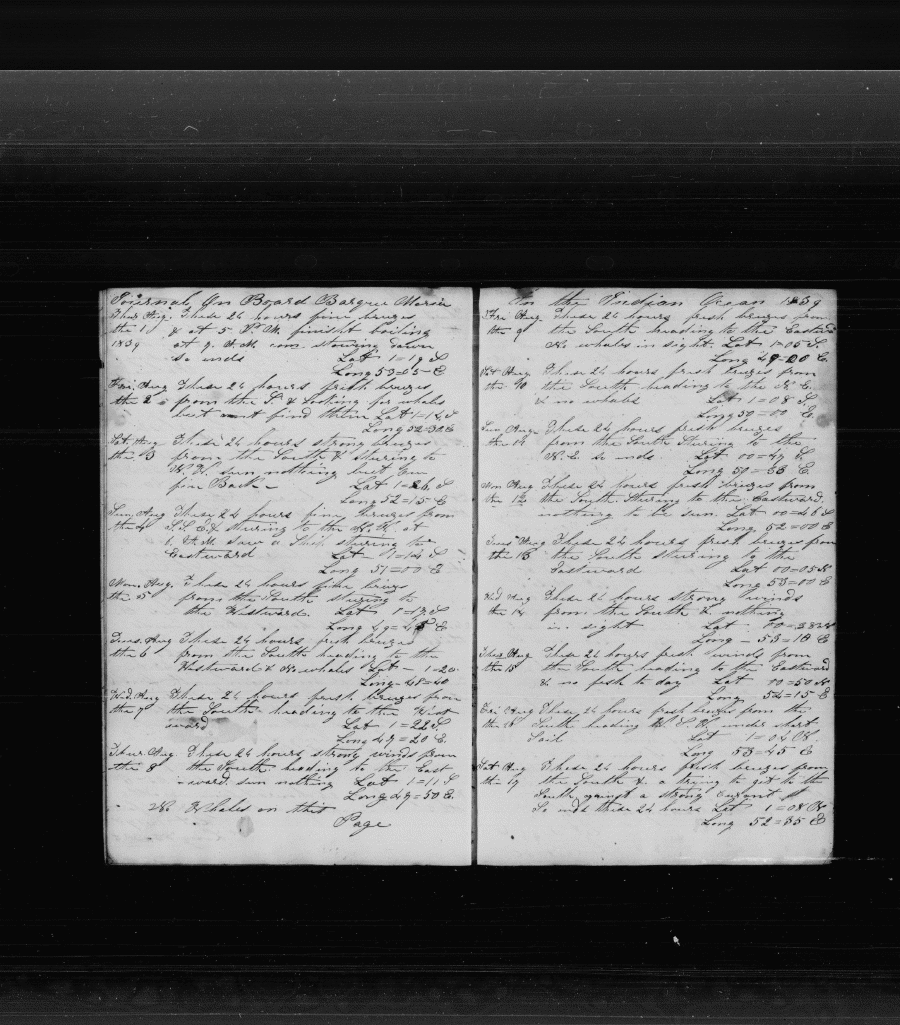 Journal On Board Barque Marcia
Thur Aug These 24 hours fine breezes
the 1 & at 5 P.M. finisht boiling
1839 at 9 A.M. com. stowing down
so ends Lat 1=19 S
Long 53=05 E
Fri Aug These 24 hours fresh breezes
the 2 = from the S & looking for whales
but cant find them Lat 1=14 S
Long 52=30 E
Sat. Aug These 24 hours strong breezes
the 3 from the South & sturing to
N.W. sun nothing but
fin Back - Lat 1=26 S
Long 52=15 E
Sun Aug These 24 hours fine breezes from
the 4 S.S.E. & sturing to the N.W. at
1 A.M. saw a Ship sturing to
Eastward Lat 1=14 S
Long 51=00 E
Mon. Aug. These 24 hours fine breezes
the 5 from the South sturing to
the Westward Lat 1=17 S
Long 49=45 E
Tues. Aug These 24 hours fresh breezes
the 6 from the South heading to the
Westward & No whales Lat - 1=20
Long - 48=40
Wed. Aug These 24 hours fresh breezes from
the 7 the South heading to the West
ward Lat 1=22 S
Long 47=20 E.
Thur Aug These 24 hours strong winds from
the 8 the South heading to the East
ward sun nothing Lat 1=11 S
Long 47=50 E
No Whales on this
Page
In the Indian Ocean 1839
Fri Aug These 24 hours fresh breezes from
the 9 the South heading to the Eastward
No whales in sight Lat 1=05 S.
Long 49=00 E
Sat Aug These 24 hours fresh breezes from
the 10 the South heading to the N.E.
& no whales Lat 1=08 S
Long 50=00 E
Sun Aug These 24 hours fresh breezes
the 11 from the South Sturing to the
N.E. so ends. Lat 00=47 S.
Long 50=53 E.
Mon Aug These 24 hours fresh breezes from
the 12 the South Sturing to the Eastward,
nothing to be sun. Lat 00=46 S
Long 52=00 E
Tues Aug These 24 hours fresh breezes from
the 13 the South sturing to the
Eastward Lat 00=05 N
Long 53=00 E
Wd Aug These 24 hours strong winds
the 14 from the South & nothing
in sight Lat 00=38 N
Long - 53=18 E
Thur Aug These 24 hours fresh winds from
the 15 the South heading to the Eastward
& no fish to day Lat 00=50 N
Long 54=15 E
Fri Aug These 24 hours fresh breezes from the
the 16 South heading W.S.W. under short
Sail Lat 1=04 N
Long 53=45 E
Sat Aug These 24 hours fresh breezes from
the 17 the South & a trying to git to the
South against a strong curant
So ends these 24 hours Lat 1=08 N
Long 52=35 E